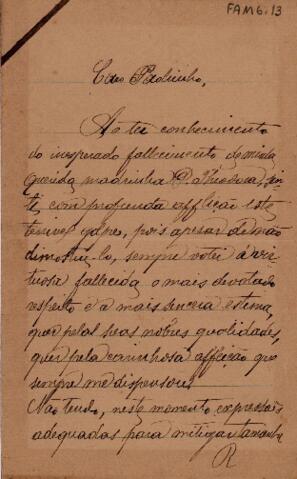 FAM 6.13
Caro Padrinho,
Ao ter conhecimento
do inesperado fallecimento de minha
querida madrinha D. Theodora, sen-
ti, com profunda afflicção este
terrivel golpe, pois apesar de não
dimostral-o, sempre votei á vir-
tuosa fallecida o mais devotado
respeito e a mais sincera estima,
quer pelas suas nobres qualidades,
quer pela carinhosa affeição que
sempre me dispensou.
Não tendo, neste momento expressões
adequadas para mitigar tamanha